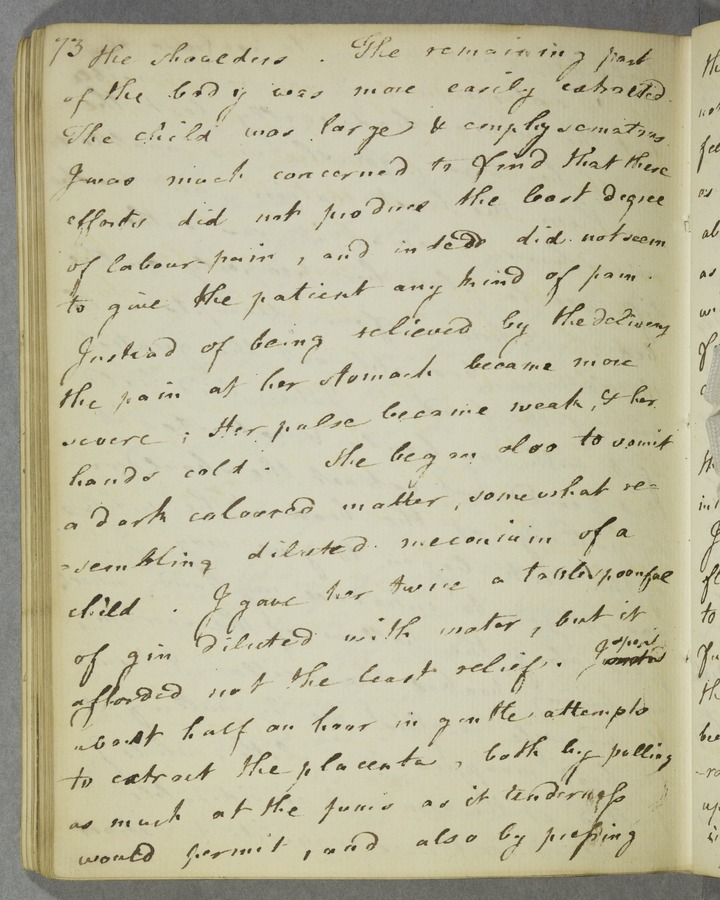 73 the shoulders . The remaining part
of the body was more easily extracted.
The child was large & emphysematous
I was much concerned to find that these
efforts did not produce the least degree
of labour-pain , and indeed did not seem
to give the patient any kind of pain .
Instead of being relieved by the delivery
the pain at her stomach became more
severe ; Her pulse became weak, & her
hands cold . She began also to vomit
a dark coloured matter, somewhat re=
=sembling diluted meconium of a
child . I gave her twice a tablespoonful
of gin diluted with water , but it
afforded not the least relief . I spent
about half an hour in gentle attempts
to extract the placenta , both by pulling
as much at the funis as it tenderness
would permit , and also by pressing